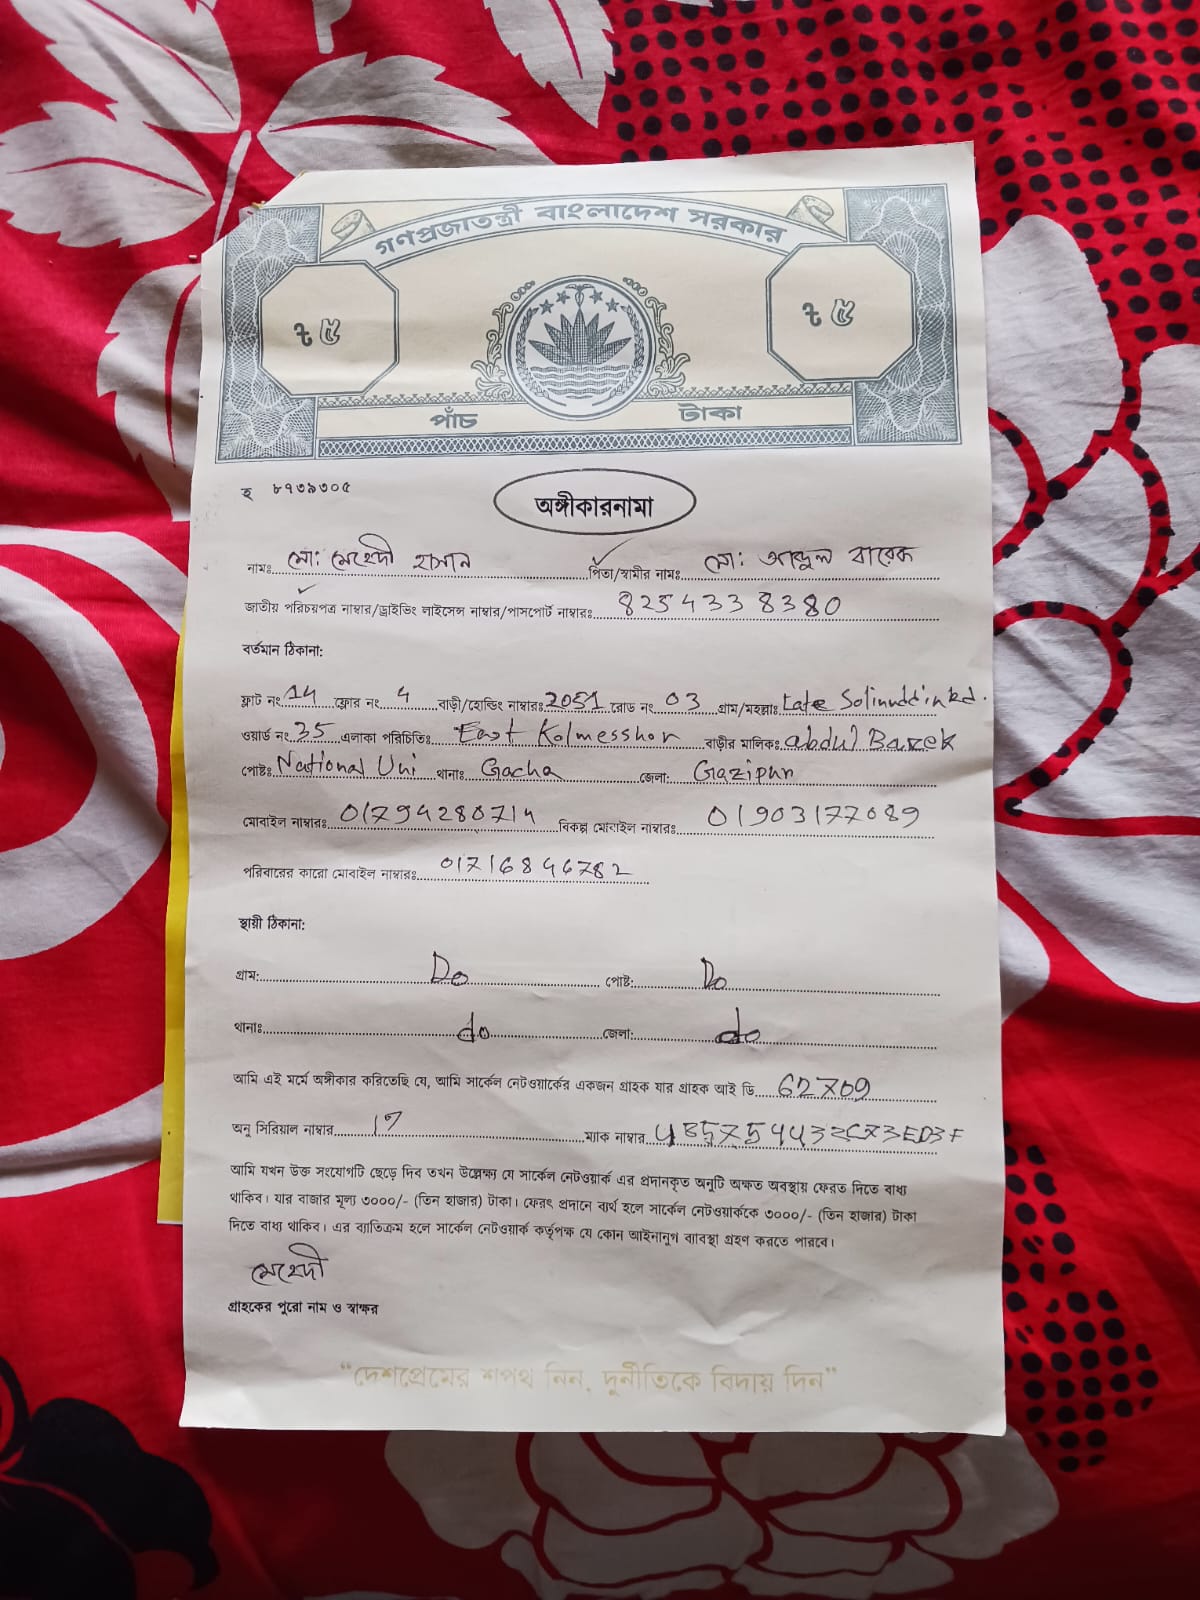 গণপ্রজাতন্ত্রী বাংলাদেশ সরকার
৳ ৫ ৳ ৫
পাঁচ টাকা
হ ৮৭৩৯৩০৫
অঙ্গীকারনামা
নামঃ মো: মেহেদী হাসান পিতা/স্বামীর নামঃ মো: আব্দুল বারেক
জাতীয় পরিচয়পত্র নাম্বার/ড্রাইভিং লাইসেন্স নাম্বার/পাসপোর্ট নাম্বারঃ 8254338380
বর্তমান ঠিকানা:
ফ্লাট নং 14 ফ্লোর নং 4 বাড়ী/হোল্ডিং নাম্বারঃ 2051 রোড নং 03 গ্রাম/মহল্লাঃ Late Solimuddin Rd.
ওয়ার্ড নং 35 এলাকা পরিচিতিঃ East Kolmesshor বাড়ীর মালিকঃ abdul Barek
পোষ্টঃ National Uni থানাঃ Gacha জেলা: Gazipur
মোবাইল নাম্বারঃ 01794280714 বিকল্প মোবাইল নাম্বারঃ 01903177089
পরিবারের কারো মোবাইল নাম্বারঃ 01716846782
স্থায়ী ঠিকানা:
গ্রাম: Do পোষ্ট: Do
থানাঃ do জেলা: do
আমি এই মর্মে অঙ্গীকার করিতেছি যে, আমি সার্কেল নেটওয়ার্কের একজন গ্রাহক যার গ্রাহক আই ডি 62709
অনু সিরিয়াল নাম্বার ম্যাক নাম্বার
আমি যখন উক্ত সংযোগটি ছেড়ে দিব তখন উল্লেক্ষ্য যে সার্কেল নেটওয়ার্ক এর প্রদানকৃত অনুটি অক্ষত অবস্থায় ফেরত দিতে বাধ্য
থাকিব। যার বাজার মূল্য ৩০০০/- (তিন হাজার) টাকা। ফেরৎ প্রদানে ব্যর্থ হলে সার্কেল নেটওয়ার্ককে ৩০০০/- (তিন হাজার) টাকা
দিতে বাধ্য থাকিব। এর ব্যাতিক্রম হলে সার্কেল নেটওয়ার্ক কর্তৃপক্ষ যে কোন আইনানুগ ব্যাবস্থা গ্রহণ করতে পারবে।
মেহেদী
গ্রাহকের পুরো নাম ও স্বাক্ষর
“দেশপ্রেমের শপথ নিন, দুর্নীতিকে বিদায় দিন”